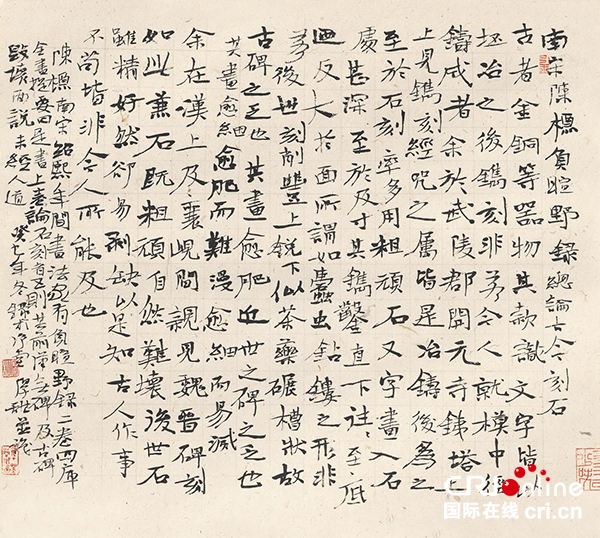 南宋陳標負暄野錄總論古今刻石
古者金銅等器物其款識文字皆以
坯冶之後鐫刻非若今人就模中徑
鑄成者余於武陵郡開元寺鐵塔上
上見鐫刻經咒之屬皆是冶鑄後為之
至於石刻率多用粗頑石又字畫入石
處甚深至於及寸其鐫鑿直下往往至底
迺反大於面所謂如蠹虫鉆鏤之形非
若後世刻削豐上銳下似茶藥碾槽狀故
古碑之乏也其畫愈肥近世之碑之乏也
其畫愈細愈肥而難漫愈細而易滅
余在漢上及襄峴間親見魏晉碑刻
如此兼石既粗頑自然難壞後世石
雖精好然卻易剝缺以是知古人作事
不苟皆非今人所能及也
陳標南宋紹熙年間書法家有負暄野錄二卷四庫
全書提要曰是書上卷論石刻者五則其前漢無碑及古碑
毀壞兩說未經人道癸巳年冬錄於
CRI online
国际在线 cri.cn